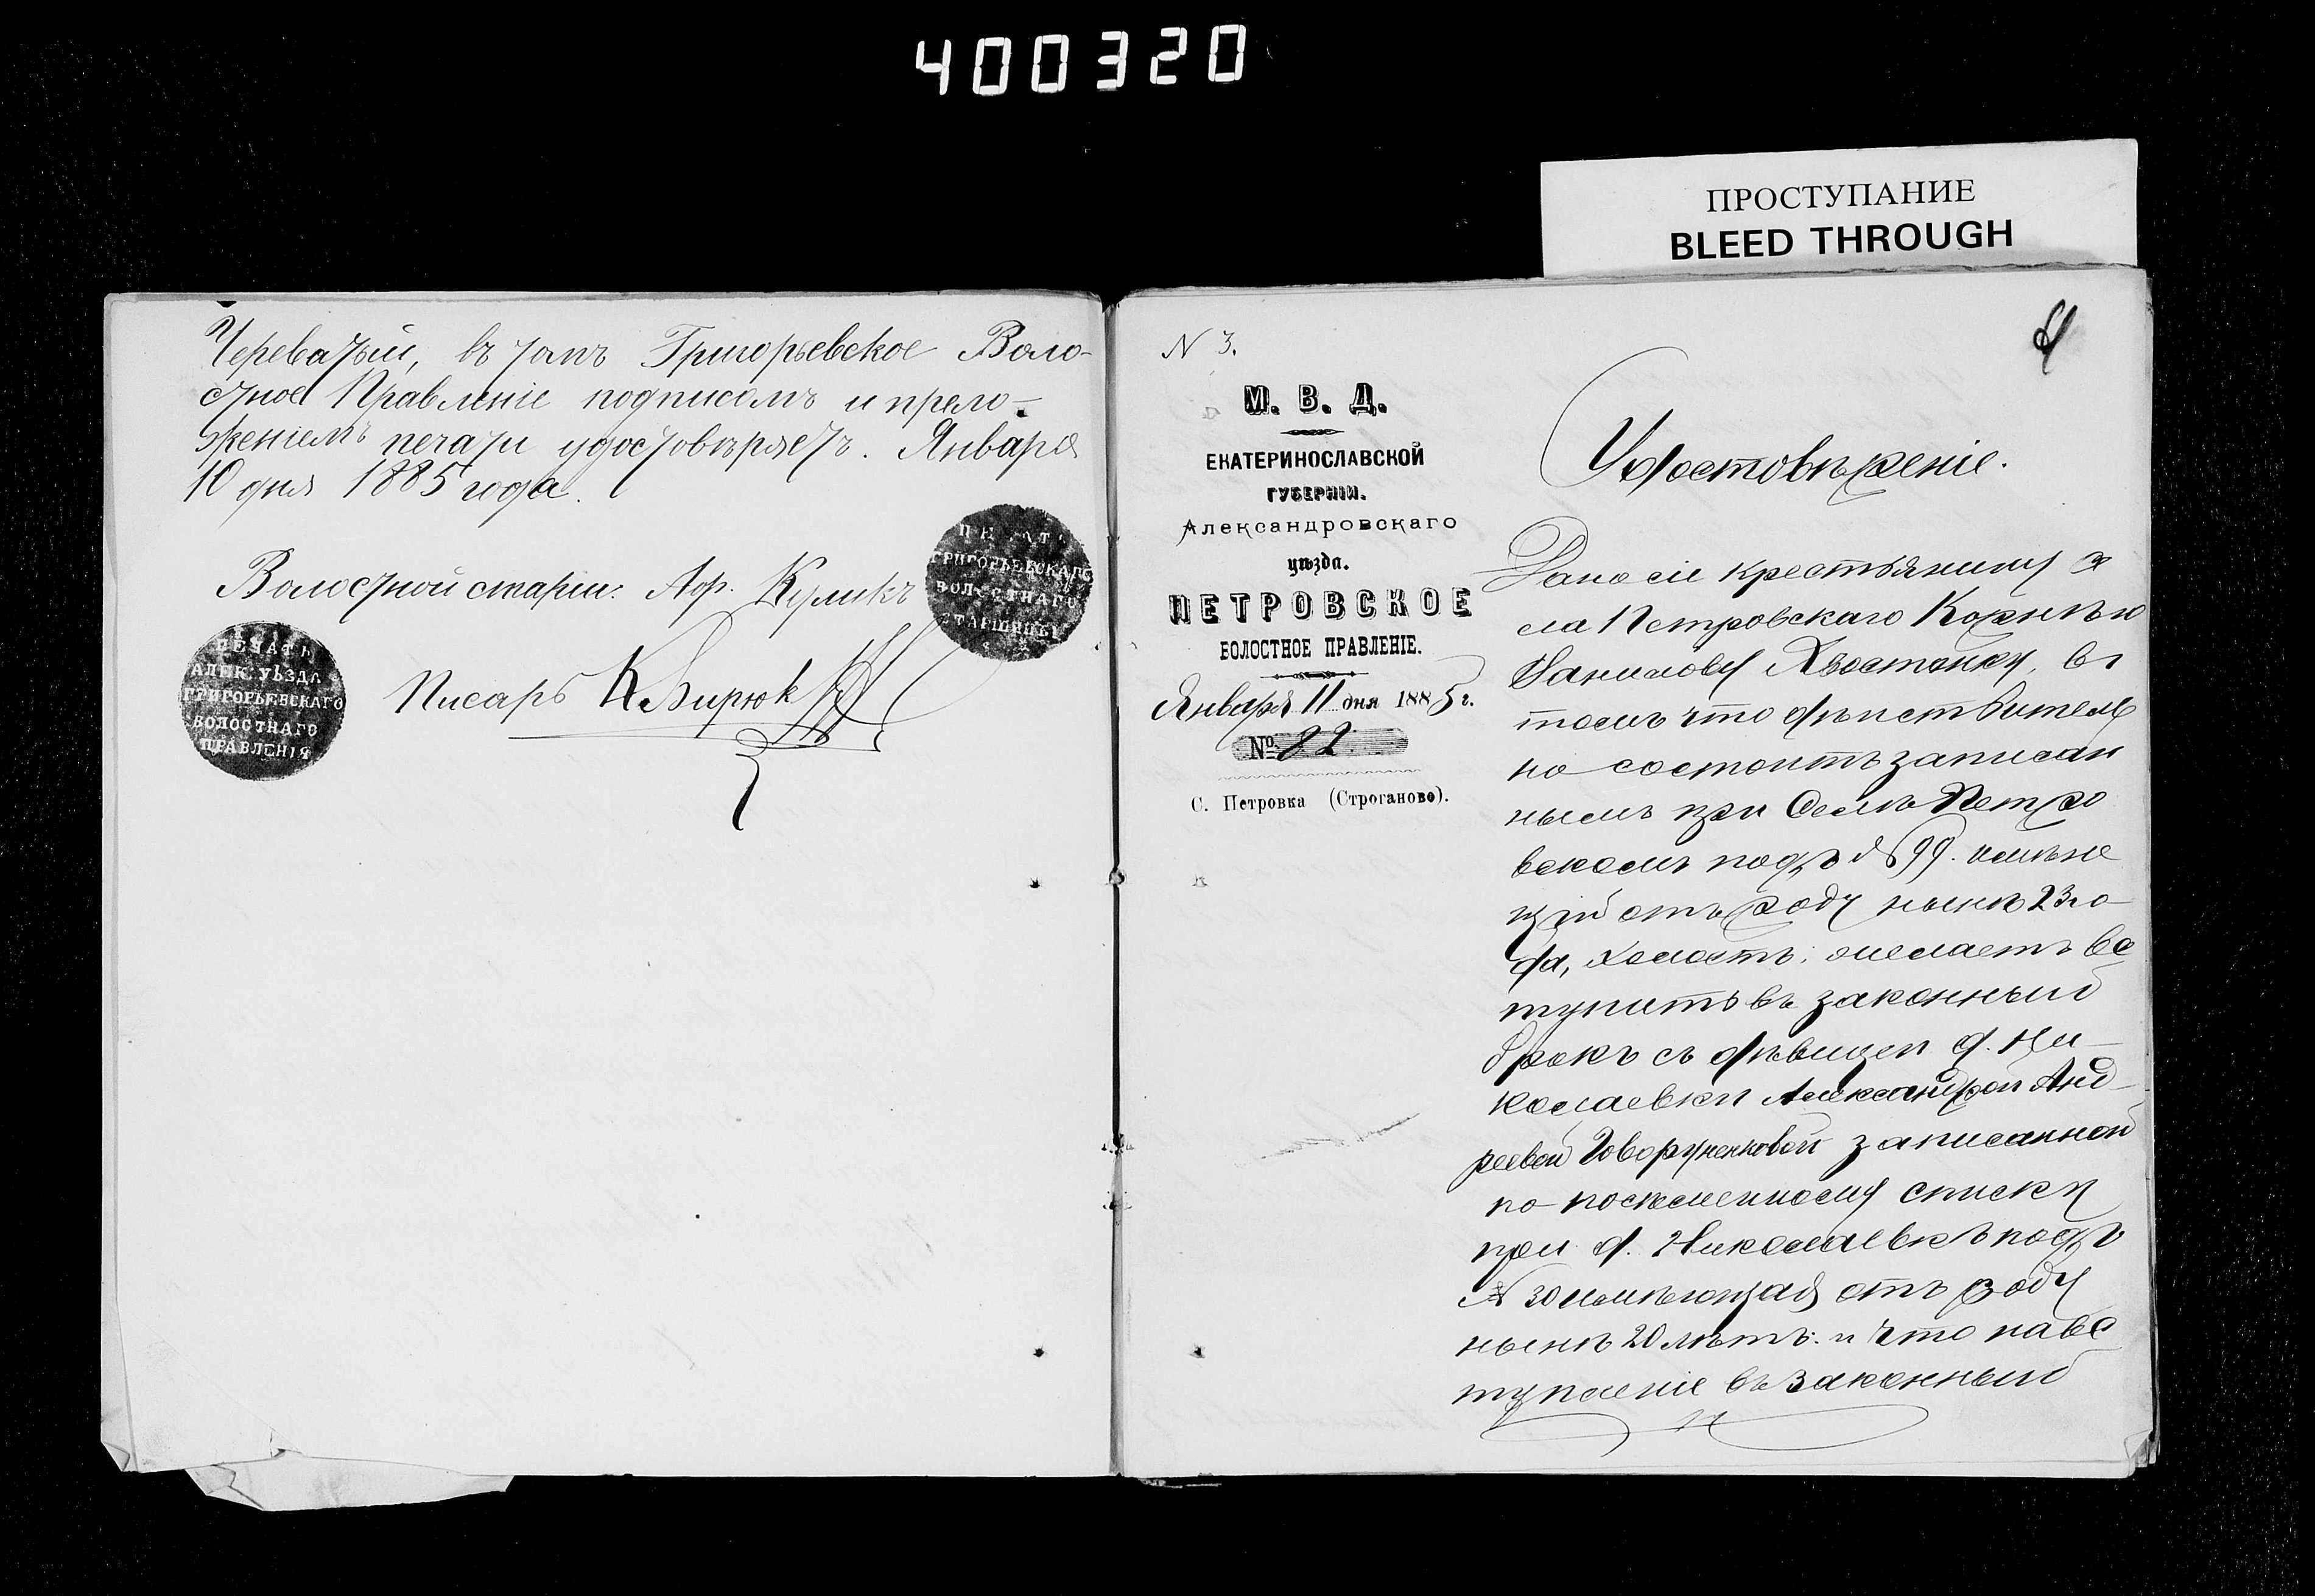 400320
ПРОСТУПАНИЕ
BLEED THROUGH
Череватый, въ томъ Григорьевское Воло-
стное Правленіе подписомъ и прело-
женіемъ печати удостовѣряетъ. Января
10 дня 1885 года.
Волостной старш. Аф. Куликъ
ПЕЧАТЬ
ГРИГОРЬЕВСКАГО
ВОЛОСТНАГО
СТАРШИНЫ
ПЕЧАТЬ
АЛЕК. УѢЗДА
ГРИГОРЬЕВСКАГО
ВОЛОСТНАГО
ПРАВЛЕНІЯ
Писарь К. Бирюк
N 3.
М. В. Д.
ЕКАТЕРИНОСЛАВСКОЙ
ГУБЕРНІИ.
Александровскаго
уѣзда.
ПЕТРОВСКОЕ
ВОЛОСТНОЕ ПРАВЛЕНІЕ.
Января 11 дня 1885 г.
№ 82
С. Петровка (Строганово).
Удостовѣреніе.
Дано сіе крестьянину се
ла Петровскаго Корнѣю
Данилову Хвостенку, въ
томъ что дѣйствитель
но состоитъ записан
нымъ при Селѣ Петро
вскомъ подъ № 99. имѣю
щій отъ роду нынѣ 23 го-
да, холостъ; желаетъ вс
тупить въ законный
бракъ съ дѣвицей д. Ни-
колаевки Александрой Анд-
реевой Говоруненковой записанной
по посемейному списку
при д. Николаевкѣ подъ
№ 30 имѣющая отъ роду
нынѣ 20 лѣтъ: и что на вс
тупленіе въ законный